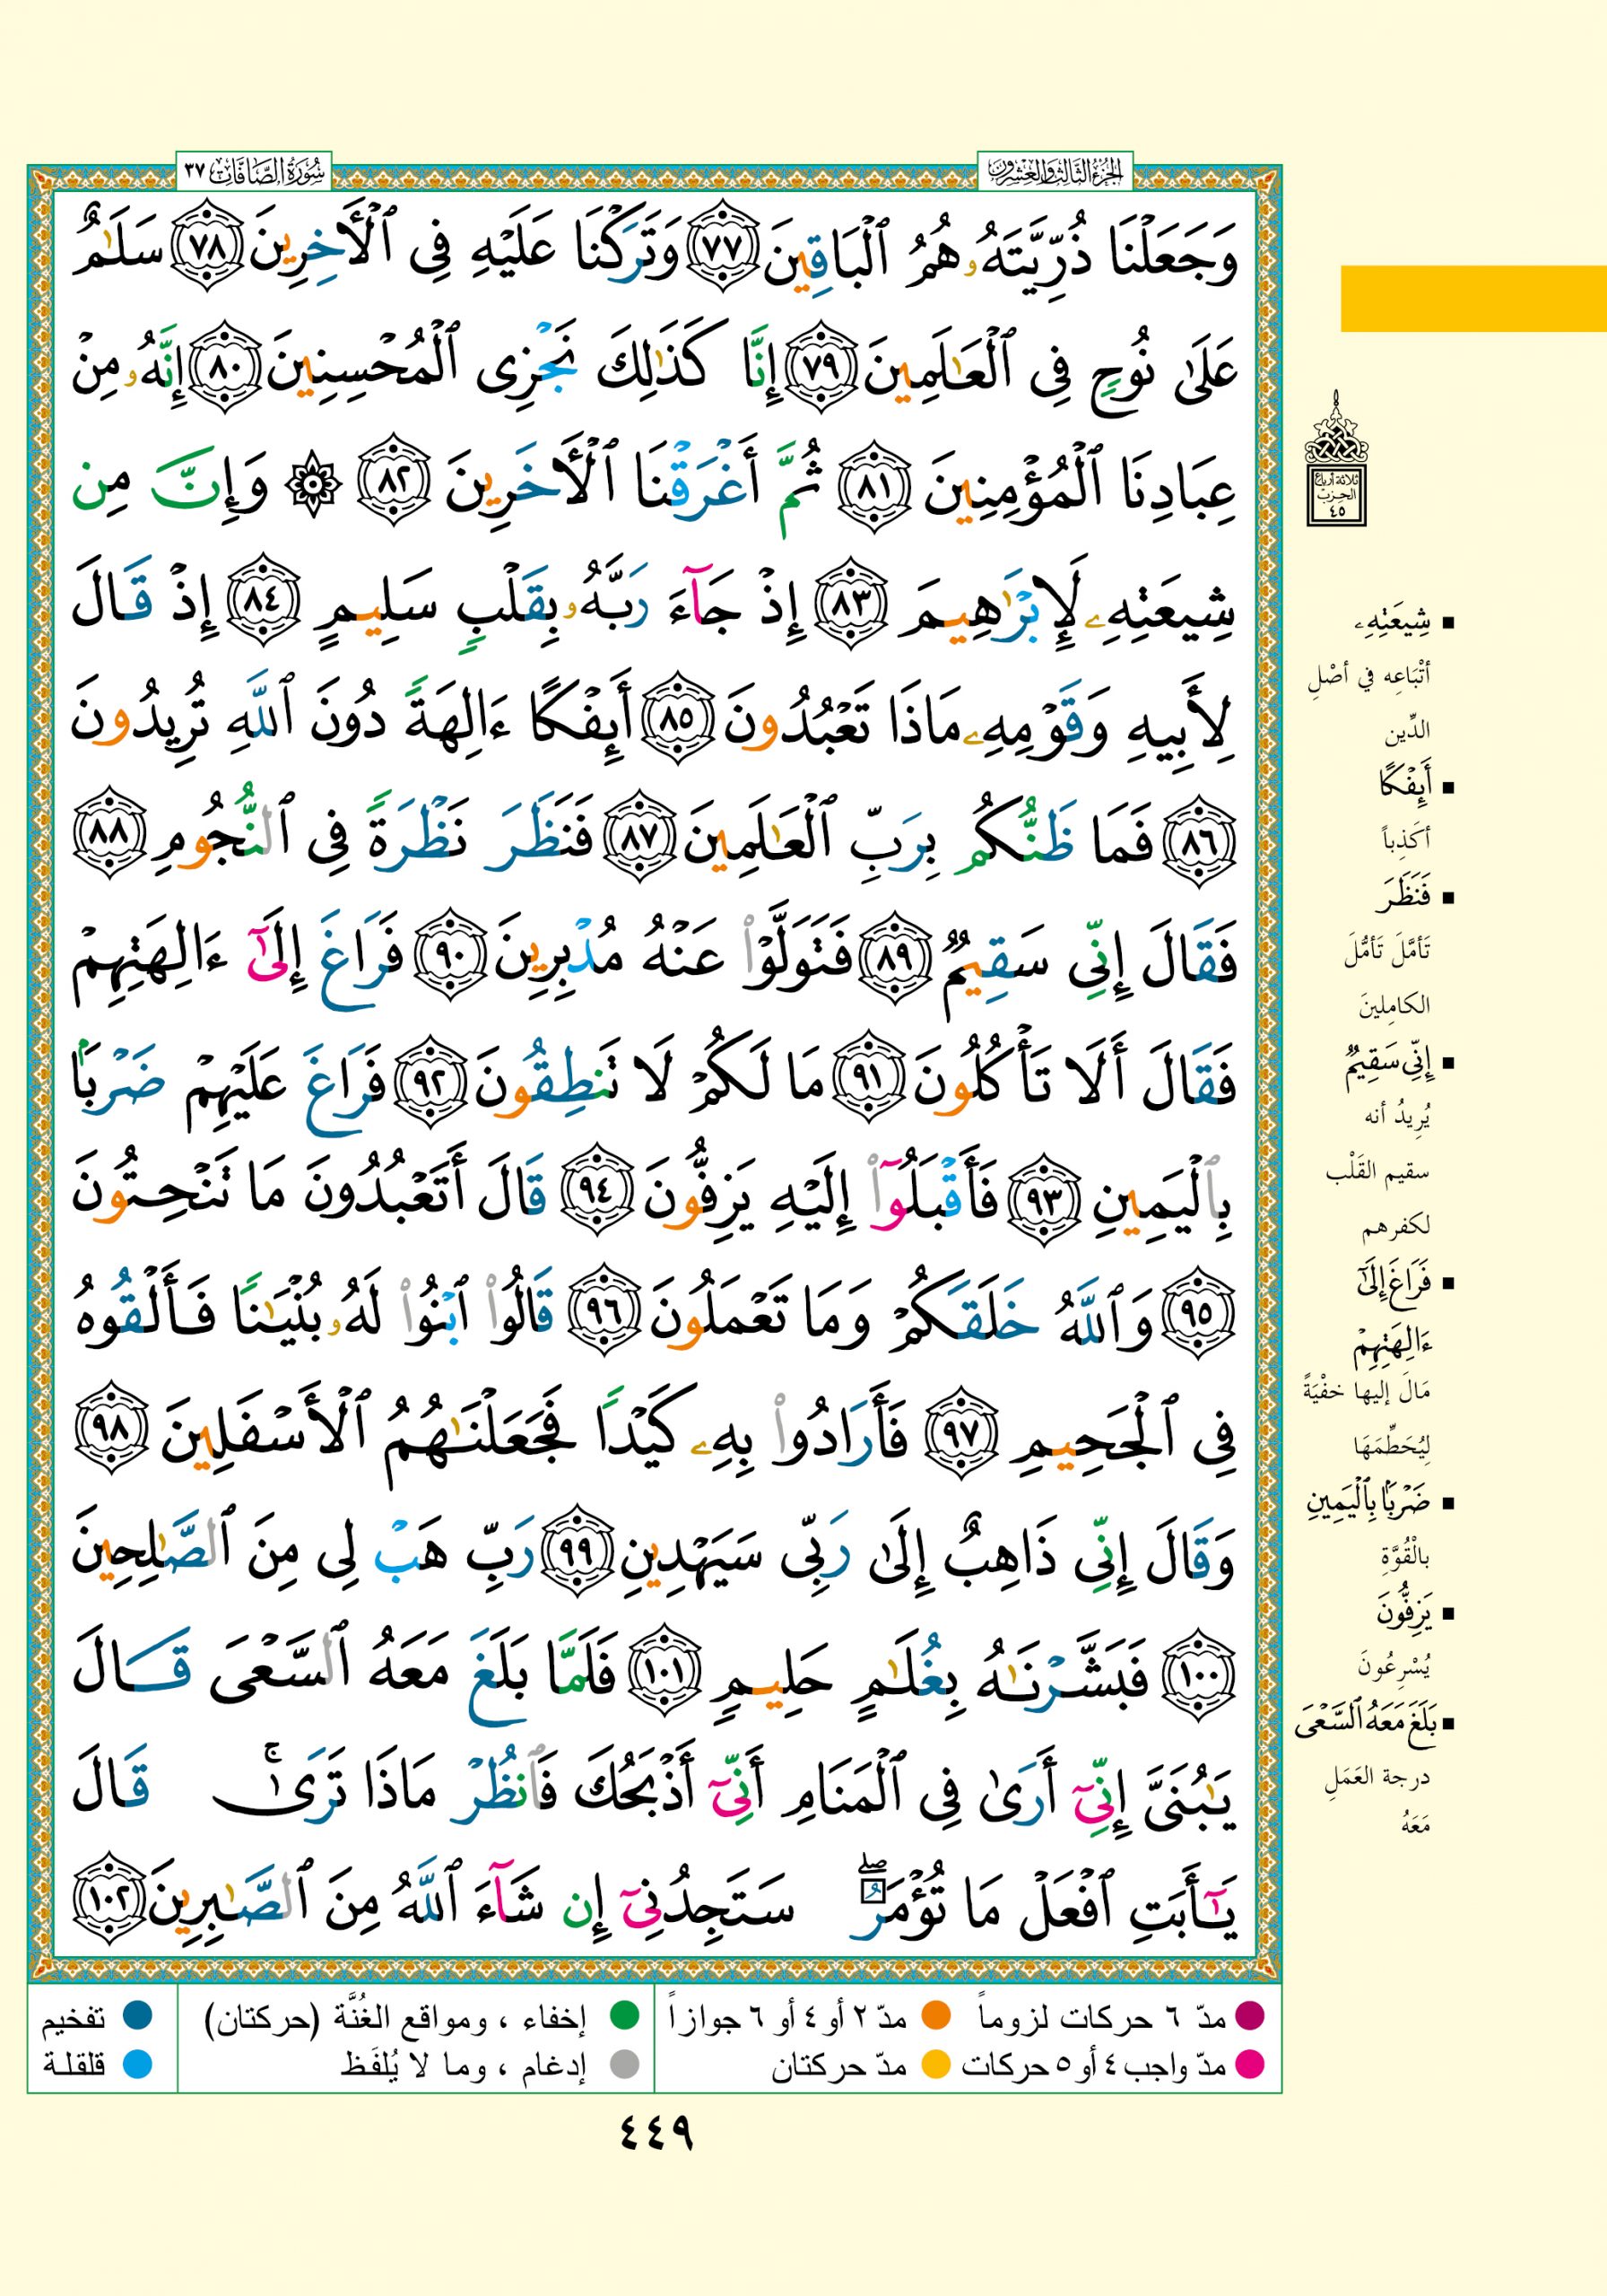 الجزء الثالث والعشرون
سورة الصافات ٣٧
وَجَعَلْنَا ذُرِّيَّتَهُۥ هُمُ ٱلْبَاقِينَ ٧٧ وَتَرَكْنَا عَلَيْهِ فِى ٱلْأَخِرِينَ ٧٨ سَلَٰمٌ
عَلَىٰ نُوحٍ فِى ٱلْعَٰلَمِينَ ٧٩ إِنَّا كَذَٰلِكَ نَجْزِى ٱلْمُحْسِنِينَ ٨٠ إِنَّهُۥ مِنْ
عِبَادِنَا ٱلْمُؤْمِنِينَ ٨١ ثُمَّ أَغْرَقْنَا ٱلْأَخَرِينَ ٨٢ ۞ وَإِنَّ مِن
شِيعَتِهِۦ لَإِبْرَٰهِيمَ ٨٣ إِذْ جَآءَ رَبَّهُۥ بِقَلْبٍ سَلِيمٍ ٨٤ إِذْ قَالَ
لِأَبِيهِ وَقَوْمِهِۦ مَاذَا تَعْبُدُونَ ٨٥ أَئِفْكًا ءَالِهَةً دُونَ ٱللَّهِ تُرِيدُونَ
٨٦ فَمَا ظَنُّكُم بِرَبِّ ٱلْعَٰلَمِينَ ٨٧ فَنَظَرَ نَظْرَةً فِى ٱلنُّجُومِ ٨٨
فَقَالَ إِنِّى سَقِيمٌ ٨٩ فَتَوَلَّوْا۟ عَنْهُ مُدْبِرِينَ ٩٠ فَرَاغَ إِلَىٰٓ ءَالِهَتِهِمْ
فَقَالَ أَلَا تَأْكُلُونَ ٩١ مَا لَكُمْ لَا تَنطِقُونَ ٩٢ فَرَاغَ عَلَيْهِمْ ضَرْبًۢا
بِٱلْيَمِينِ ٩٣ فَأَقْبَلُوٓا۟ إِلَيْهِ يَزِفُّونَ ٩٤ قَالَ أَتَعْبُدُونَ مَا تَنْحِتُونَ
٩٥ وَٱللَّهُ خَلَقَكُمْ وَمَا تَعْمَلُونَ ٩٦ قَالُوا۟ ٱبْنُوا۟ لَهُۥ بُنْيَٰنًا فَأَلْقُوهُ
فِى ٱلْجَحِيمِ ٩٧ فَأَرَادُوا۟ بِهِۦ كَيْدًا فَجَعَلْنَٰهُمُ ٱلْأَسْفَلِينَ ٩٨
وَقَالَ إِنِّى ذَاهِبٌ إِلَىٰ رَبِّى سَيَهْدِينِ ٩٩ رَبِّ هَبْ لِى مِنَ ٱلصَّٰلِحِينَ
١٠٠ فَبَشَّرْنَٰهُ بِغُلَٰمٍ حَلِيمٍ ١٠١ فَلَمَّا بَلَغَ مَعَهُ ٱلسَّعْىَ قَالَ
يَٰبُنَىَّ إِنِّىٓ أَرَىٰ فِى ٱلْمَنَامِ أَنِّىٓ أَذْبَحُكَ فَٱنظُرْ مَاذَا تَرَىٰ ۚ قَالَ
يَٰٓأَبَتِ ٱفْعَلْ مَا تُؤْمَرُ ۖ سَتَجِدُنِىٓ إِن شَآءَ ٱللَّهُ مِنَ ٱلصَّٰبِرِينَ ١٠٢
ثلاثة أرباع
الحزب
٤٥
■ شِيعَتِهِۦ
أتْبَاعِه في أصْلِ
الدِّين
■ أَئِفْكًا
أكَذِباً
■ فَنَظَرَ
تَأمَّلَ تَأمُّلَ
الكامِلينَ
■ إِنِّى سَقِيمٌ
يُرِيدُ أنه
سقيم القَلْب
لكفرهم
■ فَرَاغَ إِلَىٰٓ
ءَالِهَتِهِمْ
مَالَ إليها خفْيَةً
لِيُحَطِّمَهَا
■ ضَرْبًۢا بِٱلْيَمِينِ
بالْقُوَّةِ
■ يَزِفُّونَ
يُسْرِعُونَ
■ بَلَغَ مَعَهُ ٱلسَّعْىَ
درجة العَمَلِ
مَعَهُ
مدّ ٦ حركات لزوماً مدّ ٢ أو ٤ أو ٦ جوازاً إخفاء ، ومواقع الغُنَّة (حركتان) تفخيم
مدّ واجب ٤ أو ٥ حركات مدّ حركتان إدغام ، وما لا يُلفَظ قلقلة
٤٤٩